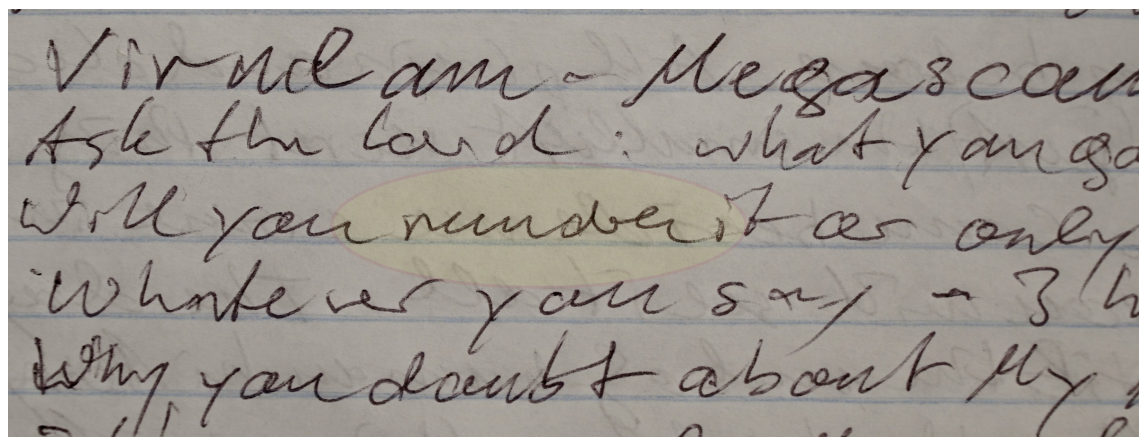 Virndlam - Megascam
Ask the Lord : what you ga
Will you number it or only
Whatever you say - 3 h
Why, you doubt about My